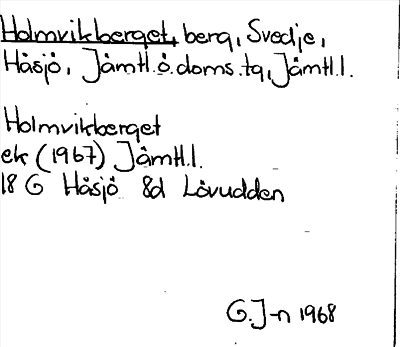 Holmvikberget, berg, Svedje,
Håsjö, Jämtl.ö.doms.tg, Jämtl.l.
Holmvikberget
ek (1967) Jämtl.l.
18 G Håsjö 8d Lövudden
G.J-n 1968